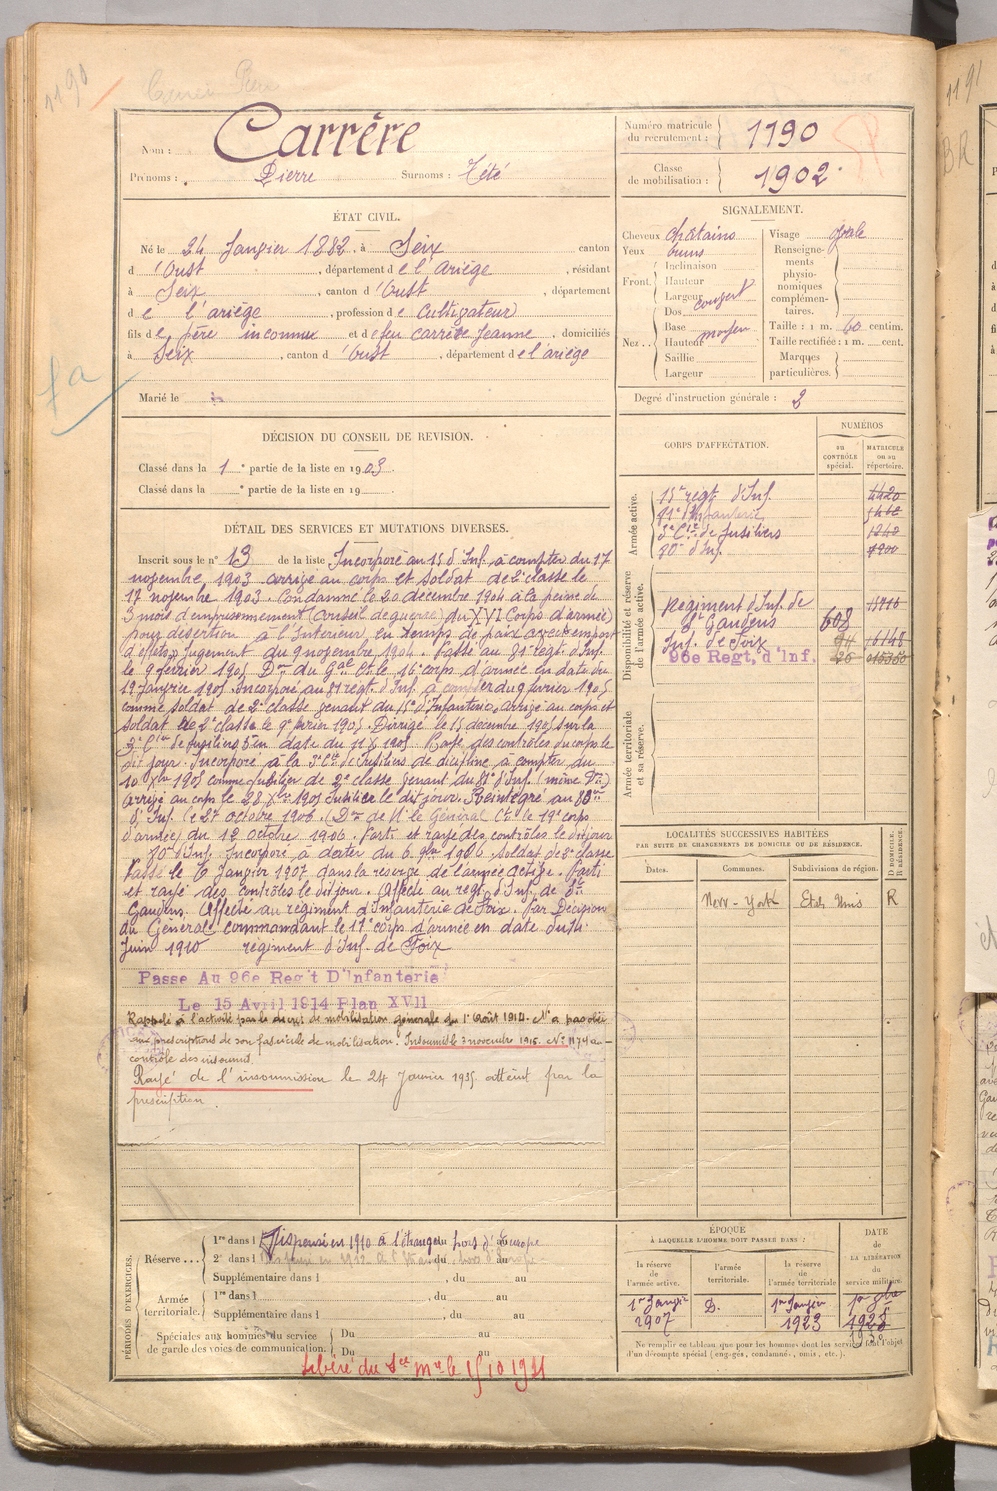 1190
Nom : Carrère
Prénoms : Pierre Surnoms : Tété
Numéro matricule du recrutement : 1190
Classe de mobilisation : 1902
ÉTAT CIVIL.
Né le 24 Janvier 1882, à Seix canton
d'Oust, département de l'Ariège, résidant
à Seix, canton d'Oust, département
de l'ariège, profession de Cultivateur
fils de père inconnu et de feu Carrère Jeanne, domiciliés
à Seix, canton d'Oust, département de l'ariège
Marié le
fa
SIGNALEMENT.
Cheveux chatains Visage ovale
Yeux bruns
Front. Inclinaison
Hauteur
Largeur couvert
Nez... Dos
Base moyen
Hauteur
Saillie
Largeur
Renseignements physionomiques complémentaires.
Taille : 1 m. 60 centim.
Taille rectifiée : 1 m. cent.
Marques particulières.
Degré d'instruction générale : 2
DÉCISION DU CONSEIL DE REVISION.
Classé dans la 1e partie de la liste en 1903.
Classé dans la e partie de la liste en 19
CORPS D'AFFECTATION.
NUMÉROS
au CONTRÔLE spécial.
MATRICULE ou au répertoire.
Armée active.
15e régt d'Inf. 4420
81e d'Infanterie
3e Cie de fusiliers 1240
80e d'Inf. 7200
Disponibilité et réserve de l'armée active.
Régiment d'Inf. de
St Gaudens 608
Inf. de Foix
96e Regt, d'Inf.
Armée territoriale et sa réserve.
DÉTAIL DES SERVICES ET MUTATIONS DIVERSES.
Inscrit sous le n° 13 de la liste Incorporé au 15e d'Inf. à compter du 17
novembre 1903 arrivé au corps et soldat de 2e classe le
17 novembre 1903. Condamné le 20 décembre 1904 à la peine de
3 mois d'emprisonnement (Conseil de guerre) du XVI Corps d'armée)
pour désertion à l'Intérieur en temps de paix avec emport
d'effets, jugement du 9 novembre 1904. Passé au 81e régt. d'Inf.
le 9 février 1905 Don du Gal Ct le 16e corps d'armée en date du
19 janvier 1905. Incorporé au 81 régt. d'Inf. à compter du 9 février 1905
comme soldat de 2e classe venant du 15e d'Infanterie, arrivé au corps et
soldat de 2e classe le 9 février 1905. Dirigé le 15 décembre 1905 sur la
3e Cie de fusiliers en date du 1905 Rayé des contrôles du corps le
dit jour. Incorporé à la 3e Cie de fusiliers de discipline à compter du
1905 comme fusilier de 2e classe venant du 81e d'Inf. (même Don)
Arrivé au corps le 28 Xbre 1905 fusilier le dit jour. Réintégré au 80e
d'Inf. le 27 octobre 1906. (Don de M le Général Ct le 19e corps
d'armée) du 12 octobre 1906. Parti et rayé des contrôles le dit jour
80e d'Inf. Incorporé à dater du 6 9bre 1906 soldat de 2e classe
Passé le 6 Janvier 1907 dans la réserve de l'armée active. Parti
et rayé des contrôles le dit jour. Affecté au regt d'Inf. de St
Gaudens. Affecté au régiment d'Infanterie de Foix. Par Décision
du Général commandant le 17e corps d'armée en date du
Juin 1910 régiment d'Inf. de Foix
Passe Au 96e Reg't D'Infanterie
Le 15 Avril 1914 Plan XVII
Rappelé à l'activité par le décret de mobilisation générale du 1er Août 1914. N'a pas obéi
aux prescriptions de son fascicule de mobilisation. Insoumis le 7 novembre 1915. N° 1174 au
contrôle des insoumis.
Rayé de l'insoumission le 24 Janvier 1935 atteint par la
prescription
LOCALITÉS SUCCESSIVES HABITÉES
PAR SUITE DE CHANGEMENTS DE DOMICILE OU DE RÉSIDENCE.
Dates. Communes. Subdivisions de région. D DOMICILE. R RÉSIDENCE.
New-York Etats Unis R
PÉRIODES D'EXERCICES.
Réserve... 1re dans l Dispensé en 1910 à l'étranger du hors d'Europe au
2e dans l , du au
Supplémentaire dans l , du au
Armée territoriale. 1re dans l , du au
Supplémentaire dans l , du au
Spéciales aux hommes du service de garde des voies de communication. Du au
Du au
Libéré du Sce Mre le 15 10 1931
ÉPOQUE
À LAQUELLE L'HOMME DOIT PASSER DANS :
la réserve de l'armée active. l'armée territoriale. la réserve de l'armée territoriale
DATE de LA LIBÉRATION du service militaire.
1er Janvier 1907 D. 1er Janvier 1923
Ne remplir ce tableau que pour les hommes dont les services font l'objet
d'un décompte spécial (engagés, condamnés, omis, etc.).